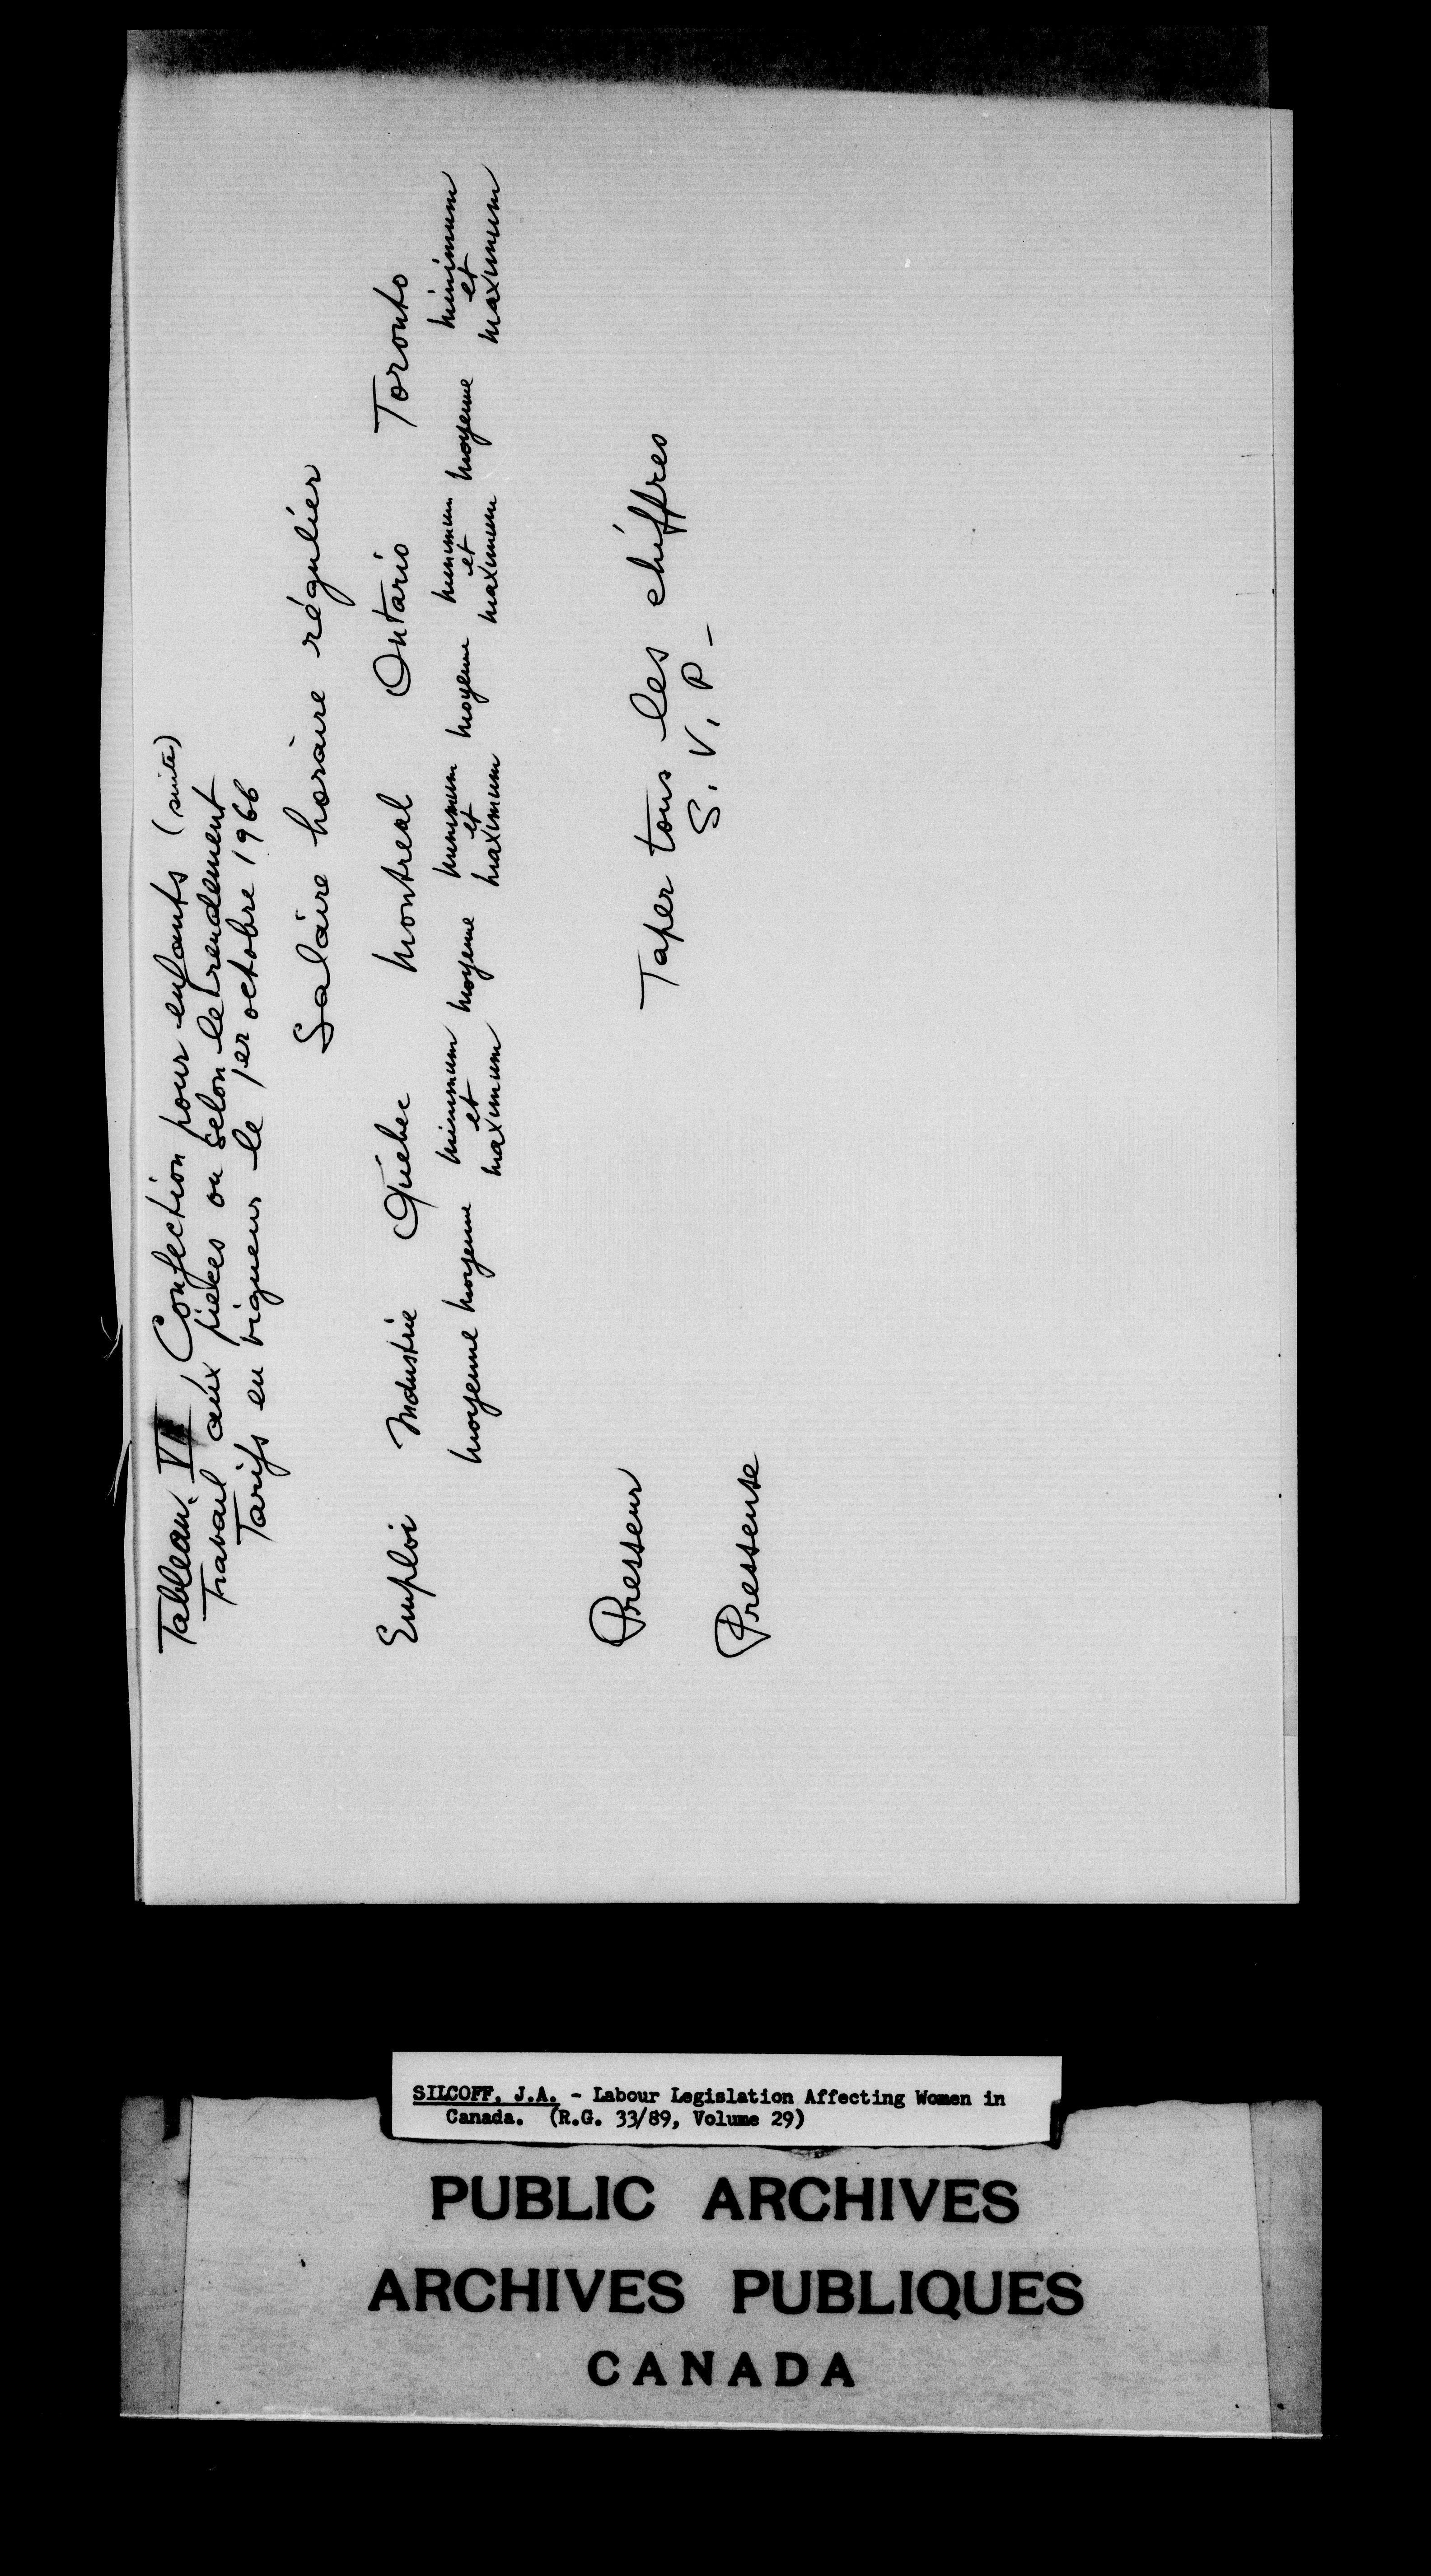 Tableau VI, Confection pour enfants (suite)
Travail aux pièces ou selon le rendement
Tarifs en vigueur le 1er octobre 1966
Salaire horaire régulier
Emploi Industrie Québec Montreal Ontario Toronto
minimum minimum minimum minimum
moyenne moyenne et moyenne et moyenne et moyenne et
maximum maximum maximum maximum
Presseur
Taper tous les chiffres
S. V. P. -
Presseuse
SILCOFF, J.A. - Labour Legislation Affecting Women in
Canada. (R.G. 33/89, Volume 29)
PUBLIC ARCHIVES
ARCHIVES PUBLIQUES
CANADA